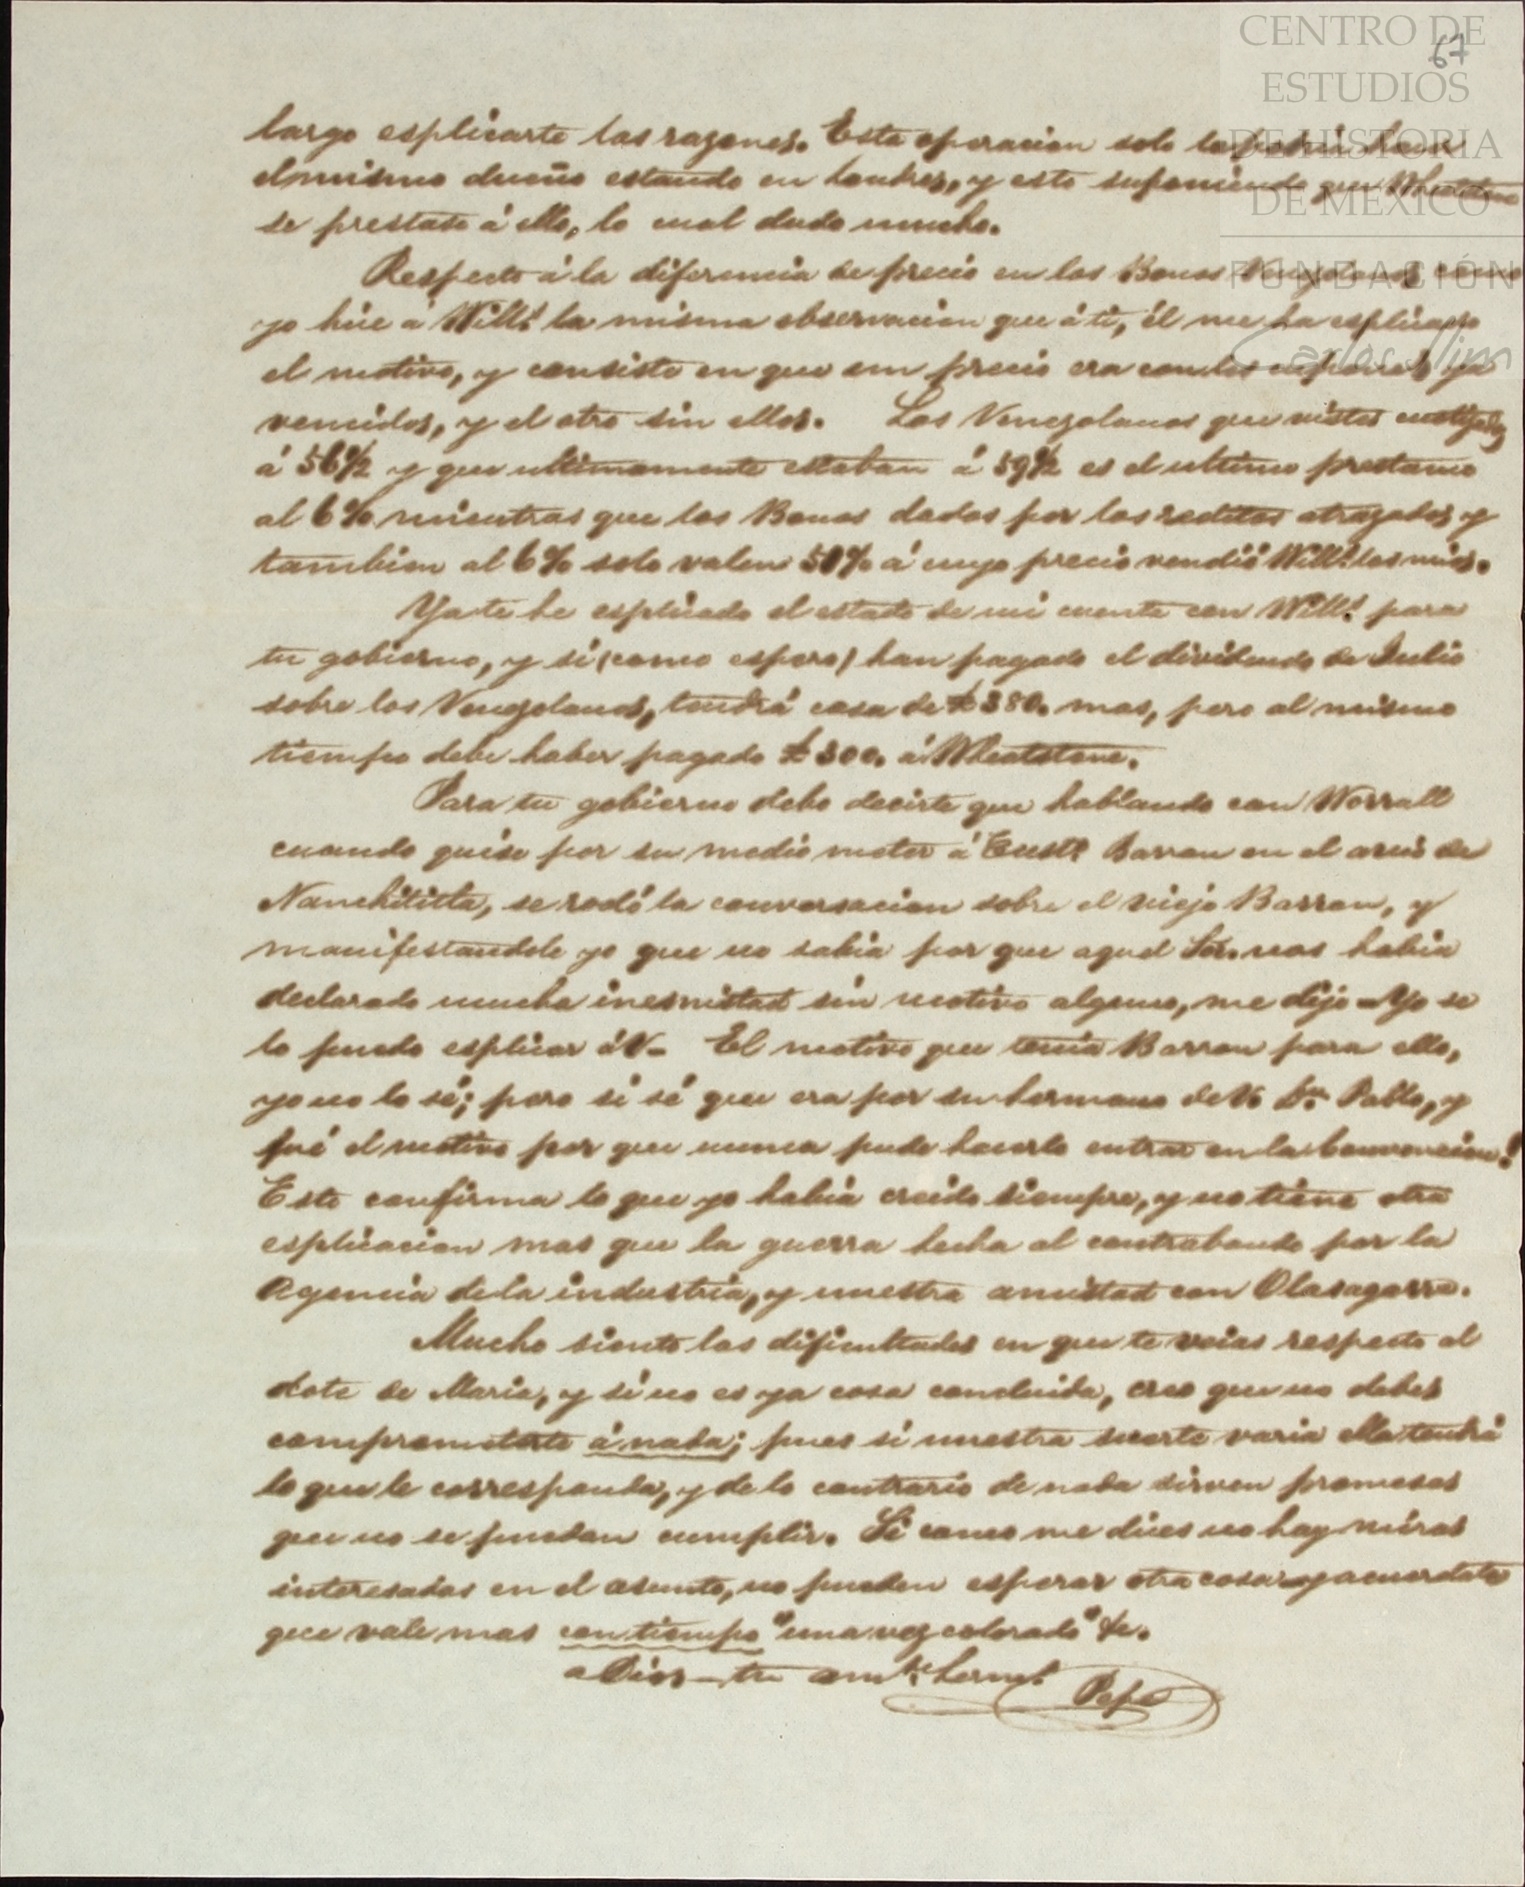 CENTRO DE
ESTUDIOS
DE HISTORIA
DE MEXICO
FUNDACIÓN
Carlos Slim
67
largo esplicarte las razones. Esta operacion solo la podria hacer
el mismo dueño estando en Londres, y esto suponiendo que Wheatstone
se prestase á ello, lo cual dudo mucho.
Respecto á la diferencia de precio en los Bonos Venezolanos como
yo hice á Will.^s la misma observacion que á ti, él me ha esplicado
el motivo, y consiste en que un precio era con los cupones ya
vencidos, y el otro sin ellos. Los Venezolanos que vistes cotizados
á 56 1/2 y que ultimamente estaban á 59 1/2 es el ultimo prestamo
al 6% mientras que los Bonos dados por los reditos atrazados y
tambien al 6% solo valen 50% á cuyo precio vendió Will.^s los mios.
Ya te he esplicado el estado de mi cuenta con Will.^s para
tu gobierno, y si (como espero) han pagado el dividendo de Julio
sobre los Venezolanos, tendrá cosa de £380. mas, pero al mismo
tiempo debe haber pagado £300. á Wheatstone.
Para tu gobierno debo decirte que hablando con Worrall
cuando quise por su medio meter á Eust.º Barron en el avío de
Nanchititla, se rodó la conversacion sobre el viejo Barron, y
manifestandole yo que no sabia por que aquel Sor. nos habia
declarado mucha inemistad sin motivo alguno, me dijo - Yo se
lo puedo esplicar á V - El motivo que tenia Barron para ello,
yo no lo sé; pero sí sé que era por su hermano de V. Dn. Pablo, y
fué el motivo por que nunca pude hacerlo entrar en la Convencion!
Esto confirma lo que yo habia creido siempre, y no tiene otra
esplicacion mas que la guerra hecha al contrabando por la
Agencia de la industria, y nuestra amistad con Olasagarre.
Mucho siento las dificultades en que te veias respecto al
dote de Maria, y si no es ya cosa concluida, creo que no debes
comprometerte á nada; pues si nuestra suerte varia ella tendrá
lo que le corresponda, y de lo contrario de nada sirven promesas
que no se puedan cumplir. Si como me dices no hay miras
interesadas en el asunto, no pueden esperar otra cosa - y acuerdate
que vale mas con tiempo "una vez colorado" &c.
a Dios - tu am.^te herm.^o
Pepe